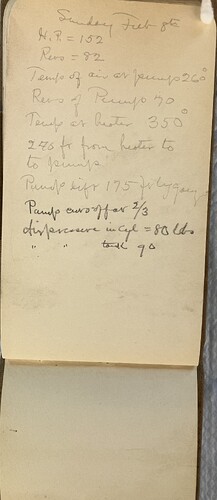 Sunday Feb 8th
H.P. = 152
Revs = 82
Temp of air at pumps 260°
Revs of Pumps 70
Temp at heater 350°
245 ft from heater to
to pumps
Pump lift 175 ft by gauge
Pump cuts off at 2/3
Air pressure in cyl = 80 lbs
" " tank 90